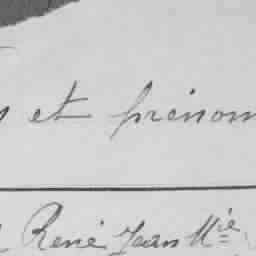 et prénom
René Jean Mie